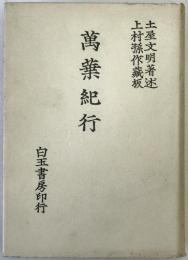 土屋文明著述
上村孫作藏板
萬葉紀行
白玉書房印行